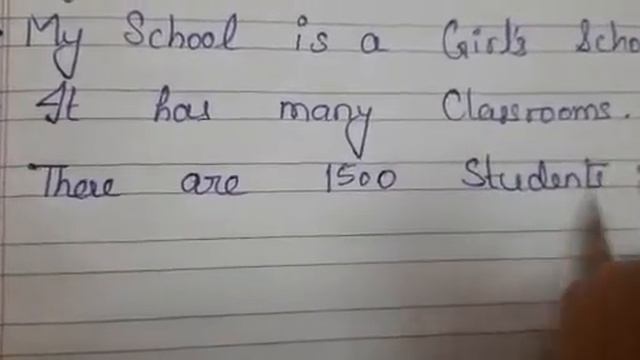 My School is a Girl's Scho
It has many Classrooms.
There are 1500 Students